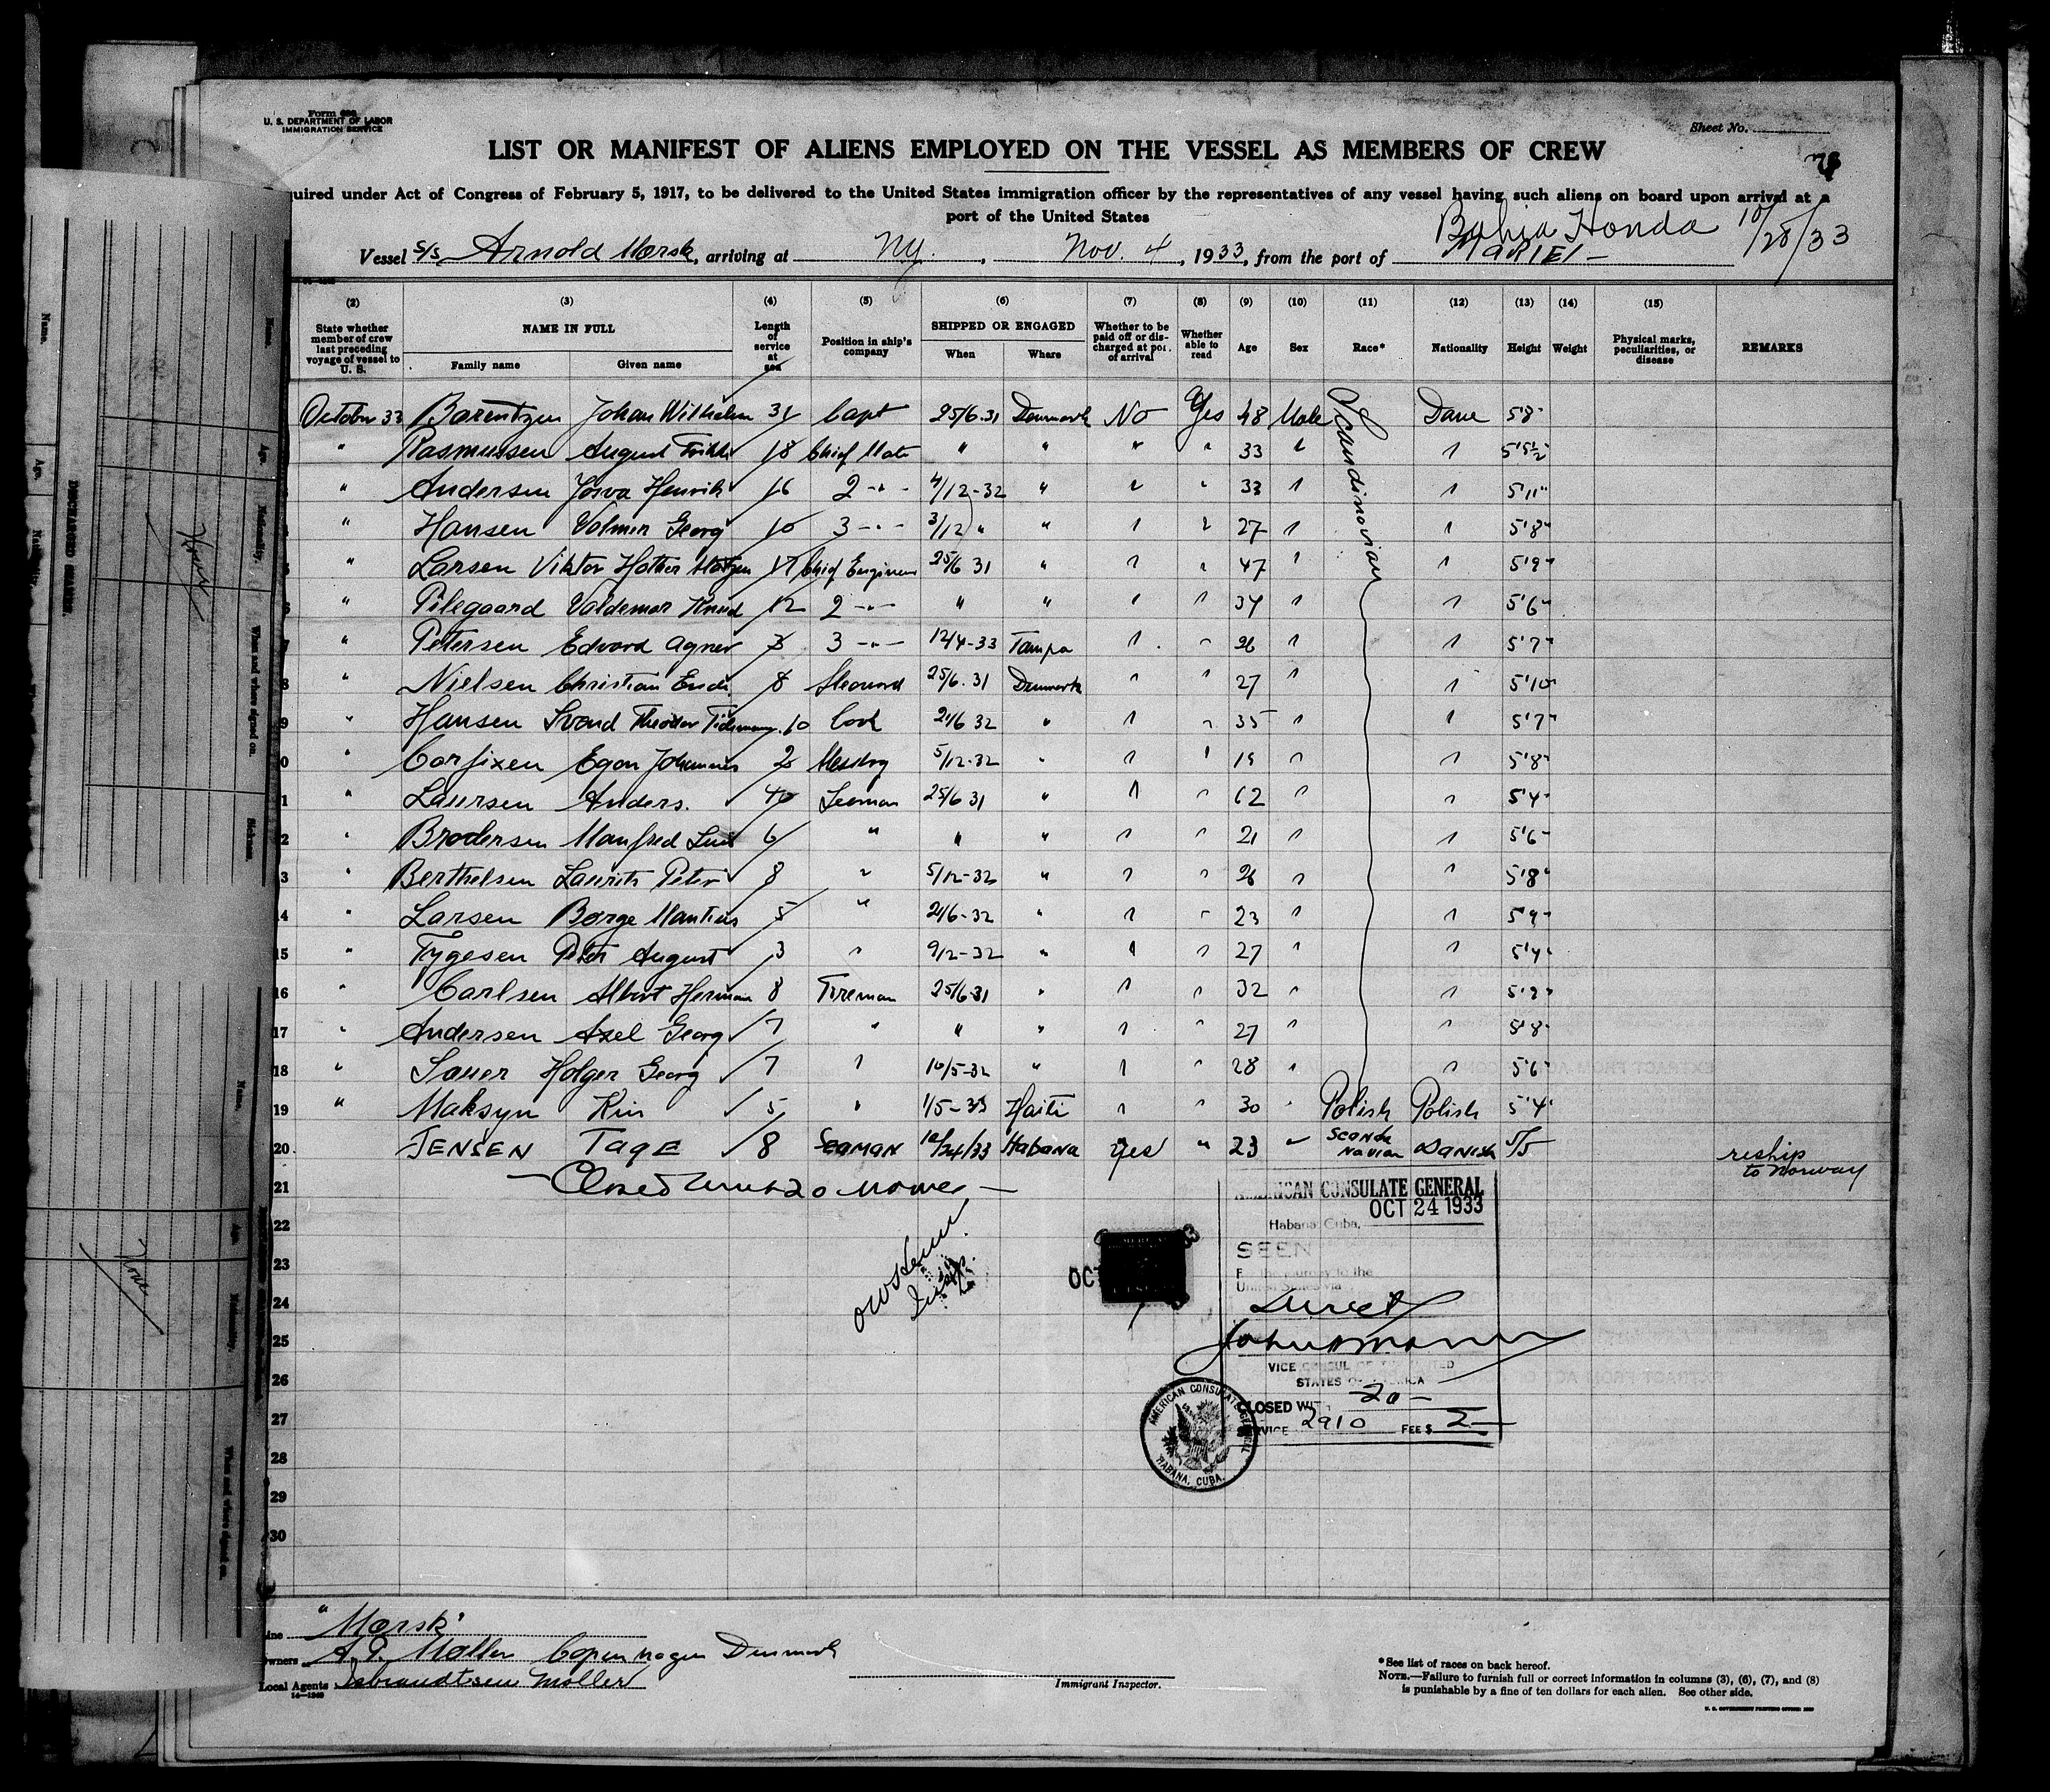 Form 680
U. S. DEPARTMENT OF LABOR
IMMIGRATION SERVICE
Sheet No.
LIST OR MANIFEST OF ALIENS EMPLOYED ON THE VESSEL AS MEMBERS OF CREW
quired under Act of Congress of February 5, 1917, to be delivered to the United States immigration officer by the representatives of any vessel having such aliens on board upon arrival at a
port of the United States
Bahia Honda 10/28/33
Vessel S/S Arnold Mærsk, arriving at Ny., Nov. 4, 1933, from the port of MARIEL
(2) (3) (4) (5) (6) (7) (8) (9) (10) (11) (12) (13) (14) (15)
State whether member of crew last preceding voyage of vessel to U. S. NAME IN FULL Family name Given name Length of service at sea Position in ship's company SHIPPED OR ENGAGED When Where Whether to be paid off or discharged at port of arrival Whether able to read Age Sex Race* Nationality Height Weight Physical marks, peculiarities, or disease REMARKS
October 33 Barentzen Johan Wilhelm 31 Capt 25/6-31 Denmark No Yes 48 Male Scandinavian Dane 5'8"
" Rasmussen August 18 Chief Mate " " " " 33 " " 5'5½"
" Andersen Josva Henrik 16 2 -"- 4/12-32 " " " 33 " " 5'11"
" Hansen Valmer Georg 10 3 -"- 3/12 " " " " 27 " " 5'8"
" Larsen Viktor Hother 17 Chief Engineer 25/6 31 " " " 47 " " 5'9"
" Pilegaard Valdemar Knud 12 2 -"- " " " " 34 " " 5'6"
" Petersen Edvard Agner 3 3 -"- 12/4-33 Tampa " " 26 " " 5'7"
" Nielsen Christian 8 Steward 25/6.31 Denmark " " 27 " " 5'10"
" Hansen Svend Theodor 10 Cook 21/6 32 " " " 35 " " 5'7"
" Corfixen Egon Johannes 2 Messboy 5/12-32 " " " 19 " " 5'8"
" Laursen Anders. 40 Seaman 25/6 31 " " " 62 " " 5'4"
" Brodersen Manfred 6 " " " " " 21 " " 5'6"
" Berthelsen Laurits Peter 8 " 5/12-32 " " " 26 " " 5'8"
" Larsen Børge 5 " 21/6-32 " " " 23 " " 5'9"
15 " Tygesen Peter August 3 " 9/12-32 " " " 27 " " 5'4"
16 " Carlsen Albert Herman 8 Fireman 25/6-31 " " " 32 " "
17 " Andersen Axel Georg 7 " " " " " 27 " " 5'8"
18 " Sauer Holger Georg 7 " 10/5-32 " " " 28 " " 5'6"
19 " Maksyn Kin 5 " 1/5-33 Haiti " " 30 " Polish Polish 5'4"
20 JENSEN TAGE 8 SEAMAN 10/24/33 Habana Yes " 23 " Scandinavian DANISH 5/5 reship to Norway
21 Closed with 20 names
22
23
24
25
26
27
28
29
30
AMERICAN CONSULATE GENERAL
OCT 24 1933
Habana, Cuba,
SEEN
For the journey to the
United States via
Direct
VICE CONSUL OF THE UNITED
STATES OF AMERICA
CLOSED WITH 20
SERVICE 2910 FEE $ 2
AMERICAN CONSULATE GENERAL
HABANA, CUBA.
OCT
Line "Mærsk"
Owners A. P. Møller Copenhagen Denmark
Local Agents Isbrandtsen Moller
14—1240
Immigrant Inspector.
*See list of races on back hereof.
NOTE.—Failure to furnish full or correct information in columns (3), (6), (7), and (8)
is punishable by a fine of ten dollars for each alien. See other side.
Name.
Age.
Nationality.
When and where signed on.
None
DISCHARGED SEAMEN.
Name.
Age.
Nationality.
When and where signed on.
None